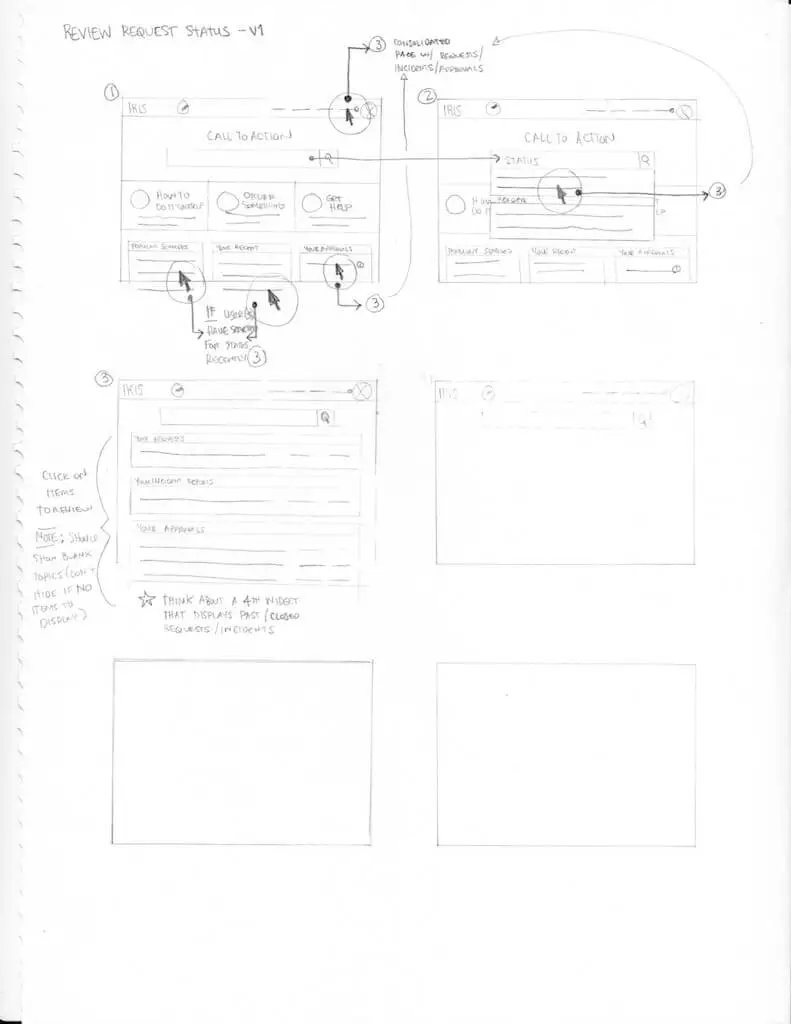 REVIEW REQUEST STATUS - V1
3 CONSOLIDATED
PAGE W/ REQUESTS/
INCIDENTS/APPROVALS
1
IRIS
CALL TO ACTION
HOW TO
DO IT YOURSELF
ORDER
SOMETHING
GET
HELP
POPULAR SEARCHES
YOUR RECENT
YOUR APPROVALS
3
IF USER(S)
HAVE SEARCHED
FOR STATUS
RECENTLY 3
2
IRIS
CALL TO ACTION
STATUS
3
HOW
DO IT
LP
YOUR RECENT
YOUR APPROVALS
3
IRIS
YOUR REQUESTS
YOUR INCIDENT REPORTS
YOUR APPROVALS
CLICK ON
ITEMS
TO REVIEW
NOTE: SHOULD
SHOW BLANK
TOPICS (DON'T
HIDE IF NO
ITEMS TO
DISPLAY)
THINK ABOUT A 4TH WIDGET
THAT DISPLAYS PAST/CLOSED
REQUESTS/INCIDENTS
IRIS